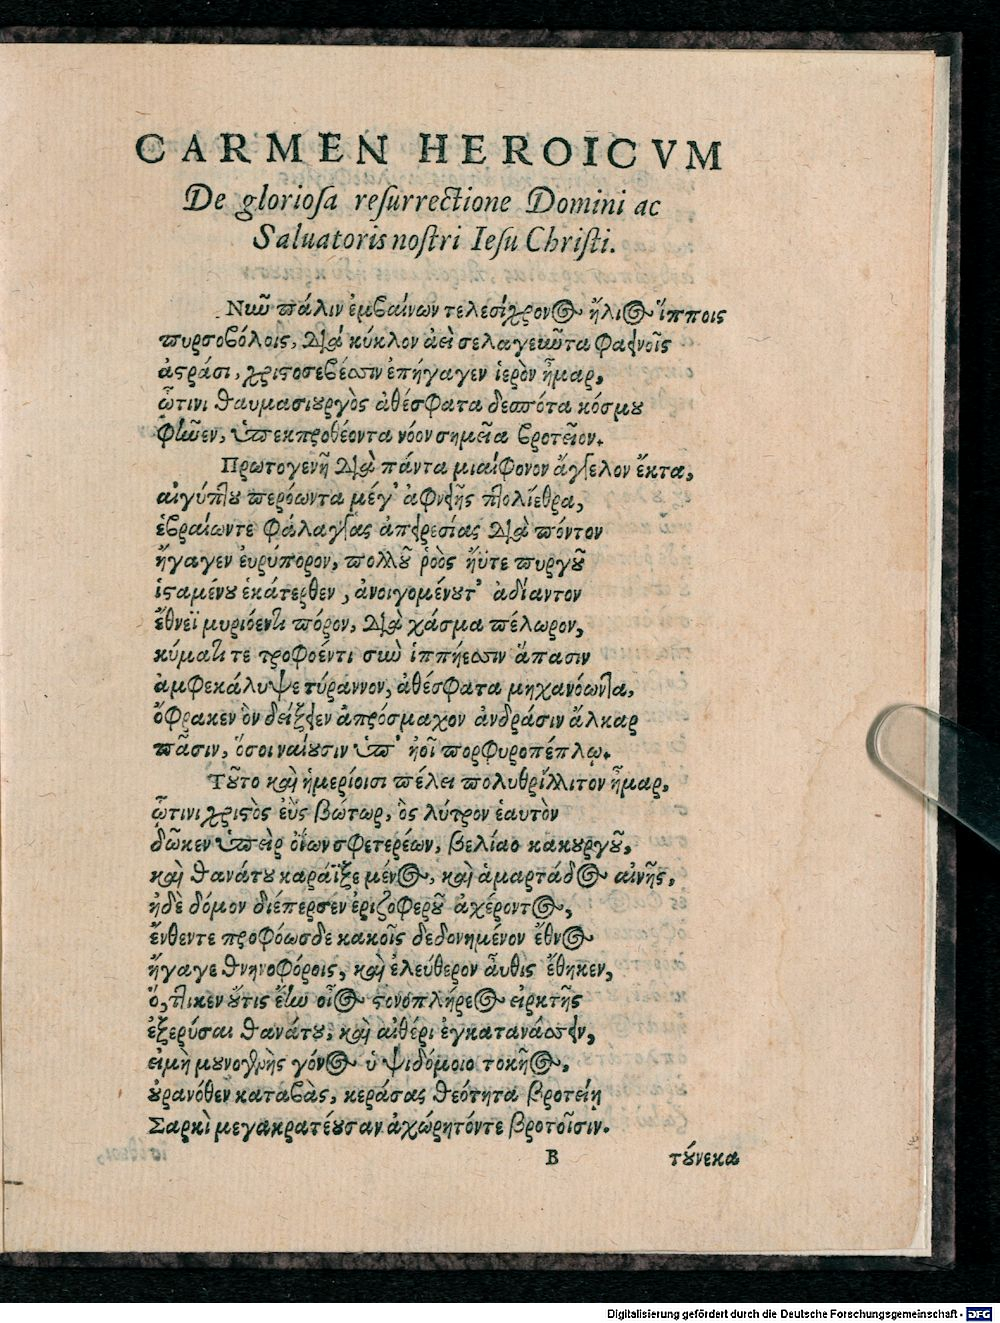 CARMEN HEROICVM
De gloriosa resurrectione Domini ac
Saluatoris nostri Iesu Christi.
Νιῦ πάλιν ἐμβαίνων τελεσίχρονος ἥλιος ἵπποις
πυρσοβόλοις, διὰ κύκλον ἀεὶ σελαγεῦντα φαεινοῖς
ἀστράσι, χριστοσεβέσσιν ἐπήγαγεν ἱερὸν ἦμαρ,
ᾧτινι θαυμασιουργὸς ἀθέσφατα δεσπότα κόσμου
φῆνεν, ὑπεκπροθέοντα νόον σημεῖα βροτεῖον.
Πρωτογενῆ διὰ πάντα μιαίφονον ἄγγελον ἔκτα,
αἰγύπτου περόωντα μέγ' ἀφνειῆς πτολίεθρα,
ἑβραίωντε φάλαγγας ἀπειρεσίας διὰ πόντον
ἤγαγεν εὐρύπορον, πολλοῦ ῥόος ἤΰτε πυργοῦ
ἱσταμένου ἑκάτερθεν, ἀνοιγομένουτ' ἀδίαντον
ἔθνεϊ μυριόεντι πόρον, διὰ χάσμα πέλωρον,
κύματι τε τροφοέντι σιὺν ἱππήεσσιν ἅπασιν
ἀμφεκάλυψε τύραννον, ἀθέσφατα μηχανόωντα,
ὄφρακεν ὃν δείξειεν ἀπρόσμαχον ἀνδράσιν ἄλκαρ
πᾶσιν, ὅσοι ναίουσιν ὑπ' ἠοῖ πορφυροπέπλῳ.
Τοῦτο καὶ ἡμερίοισι πέλει πολυθρίλλιτον ἦμαρ,
ᾧτινι χριστὸς ἐῢς βώτωρ, ὃς λύτρον ἑαυτὸν
δῶκεν ὑπεὶρ οἴων σφετερέων, βελίαο κακουργοῦ,
καὶ θανάτου καράϊξε μένος, καὶ ἁμαρτάδος αἰνῆς,
ἠδὲ δόμον διέπερσεν ἐριζοφεροῦ ἀχέροντος,
ἔνθεντε προφόωσδε κακοῖς δεδονημένον ἔθνος
ἤγαγε θνηνοφόροις, καὶ ἐλεύθερον αὖθις ἔθηκεν,
ὅ,τικεν οὔτις ἔην οἷος στονοπλήρεος εἱρκτῆς
ἐξερύσαι θανάτου, καὶ αἰθέρι ἐγκατανάσσειν,
εἰμὴ μουνογενὴς γόνος ὑψιδόμοιο τοκῆος,
οὐρανόθεν καταβὰς, κεράσας θεότητα βροτείῃ
Σαρκὶ μεγακρατέουσαν ἀχώρητόντε βροτοῖσιν.
B τούνεκα
Digitalisierung gefördert durch die Deutsche Forschungsgemeinschaft - DFG